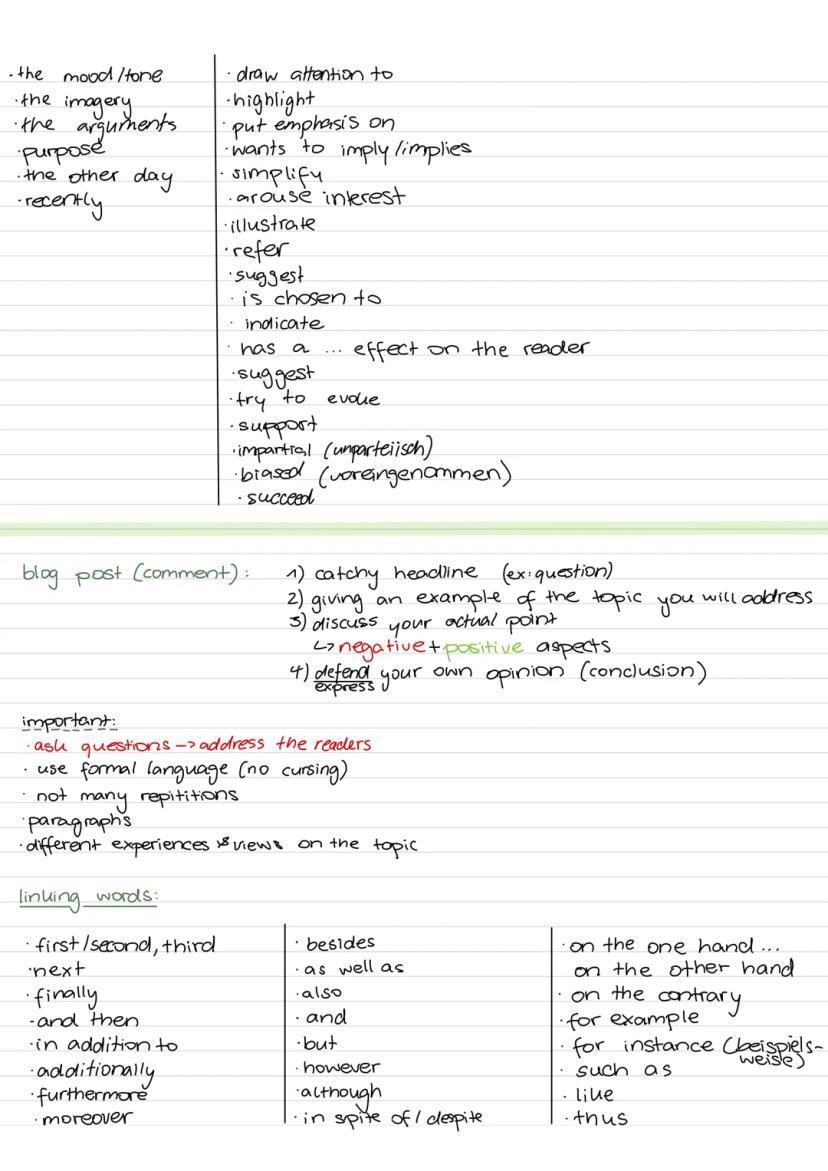 ·the mood/tone
·the imagery
·the arguments
·purpose
·the other day
·recently
·draw attention to
·highlight
·put emphasis on
·wants to imply/implies
·simplify
·arouse interest
·illustrate
·refer
·suggest
·is chosen to
·indicate
·has a ... effect on the reader
·suggest
·try to evoke
·support
·impartial (unparteiisch)
·biased (voreingenommen)
·succeed
blog post (comment): 1) catchy headline (ex: question)
2) giving an example of the topic you will address
3) discuss your actual point
↳ negative + positive aspects
4) defend your own opinion (conclusion)
express
important:
·ask questions -> address the readers
·use formal language (no cursing)
·not many repititions
·paragraphs
·different experiences & views on the topic
linking words:
·first/second, third
·next
·finally
·and then
·in addition to
·additionally
·furthermore
·moreover
·besides
·as well as
·also
·and
·but
·however
·although
·in spite of / despite
·on the one hand ...
on the other hand
·on the contrary
·for example
·for instance (beispiels-
weise)
·such as
·like
·thus